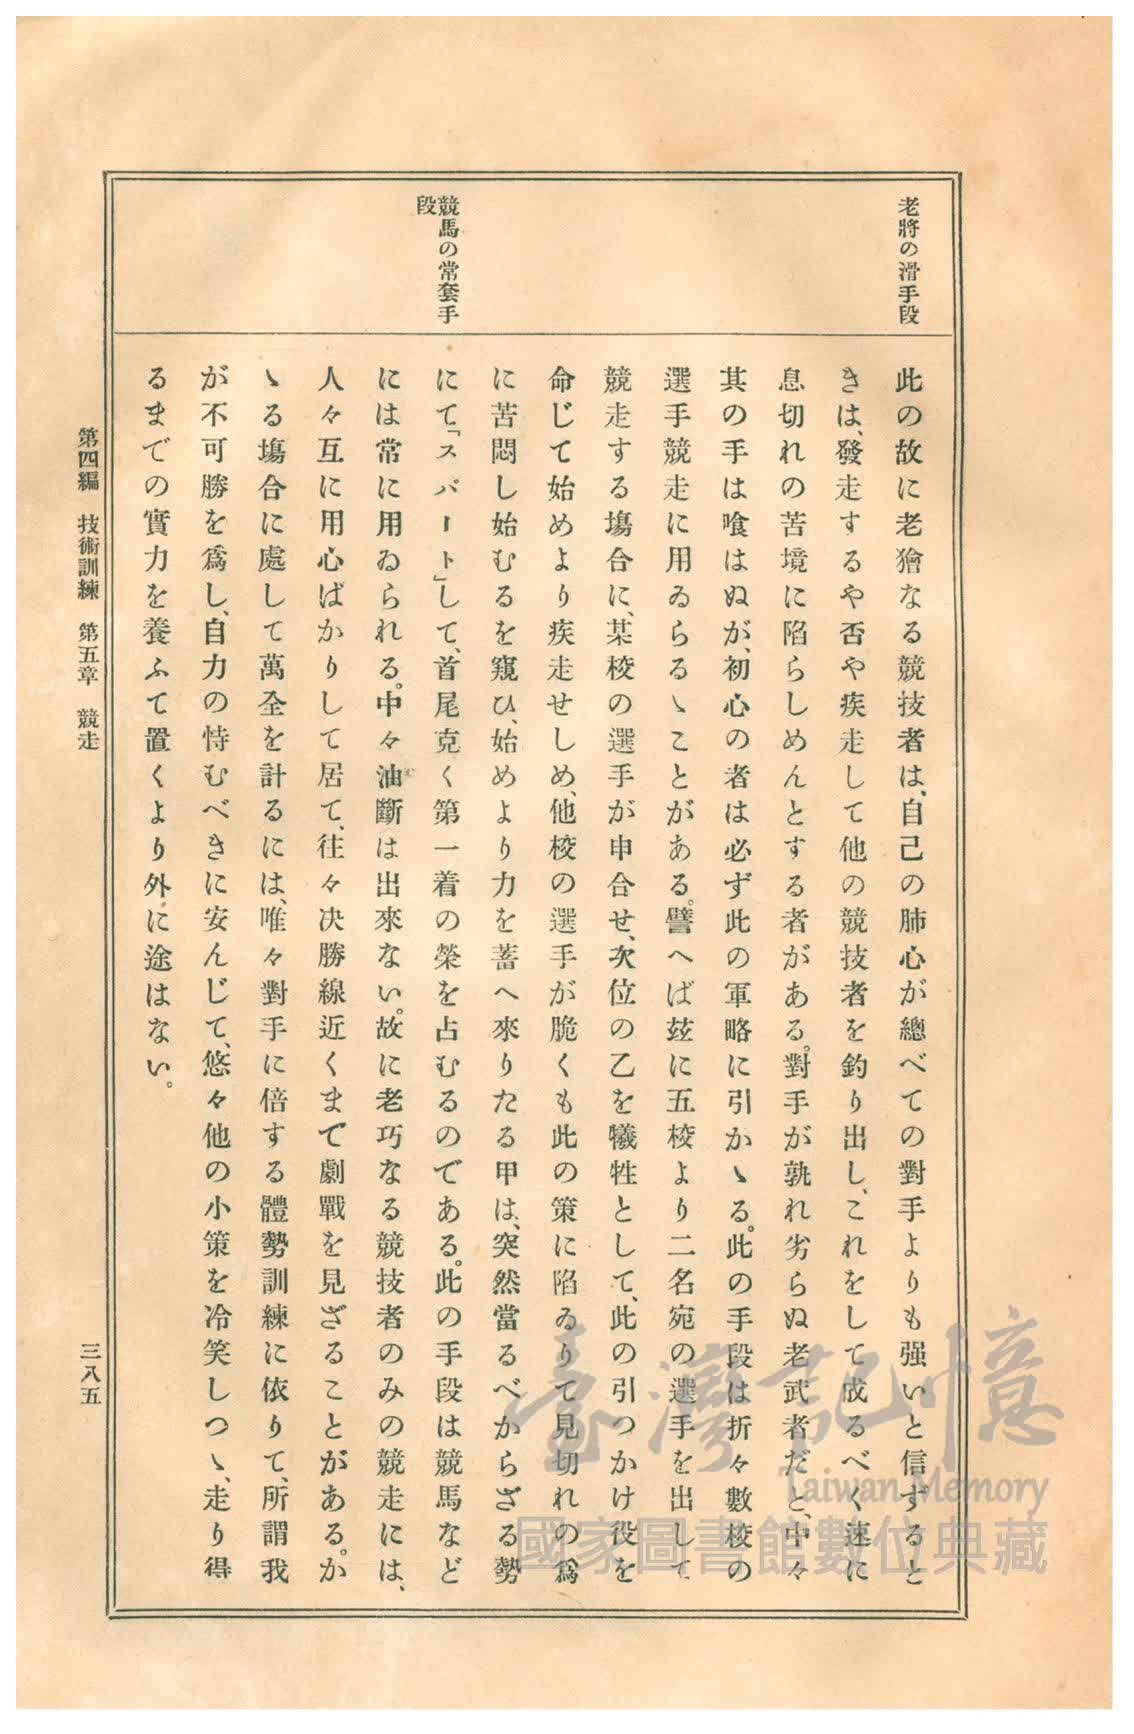 老將の滑手段
競馬の常套手
段
此の故に老獪なる競技者は、自己の肺心が總べての對手よりも强いと信ずると
きは、發走するや否や疾走して他の競技者を釣り出し、これをして成るべく速に
息切れの苦境に陷らしめんとする者がある。對手が孰れ劣らぬ老武者だと、中々
其の手は喰はぬが、初心の者は必ず此の軍略に引かゝる。此の手段は折々數校の
選手競走に用ゐらるゝことがある。譬へば玆に五校より二名宛の選手を出して
競走する塲合に、某校の選手が申合せ、次位の乙を犧牲として、此の引つかけ役を
命じて始めより疾走せしめ、他校の選手が脆くも此の策に陷ゐりて見切れの爲
に苦悶し始むるを窺ひ、始めより力を蓄へ來りたる甲は、突然當るべからざる勢
にて「スパート」して、首尾克く第一着の榮を占むるのである。此の手段は競馬など
には常に用ゐられる。中々油斷は出來ない。故に老巧なる競技者のみの競走には、
人々互に用心ばかりして居て、往々决勝線近くまで劇戰を見ざることがある。か
ゝる塲合に處して萬全を計るには、唯々對手に倍する體勢訓練に依りて、所謂我
が不可勝を爲し、自力の恃むべきに安んじて、悠々他の小策を冷笑しつゝ、走り得
るまでの實力を養ふて置くより外に途はない。
第四編 技術訓練 第五章 競走
三八五
臺灣記憶
Taiwan Memory
國家圖書館數位典藏